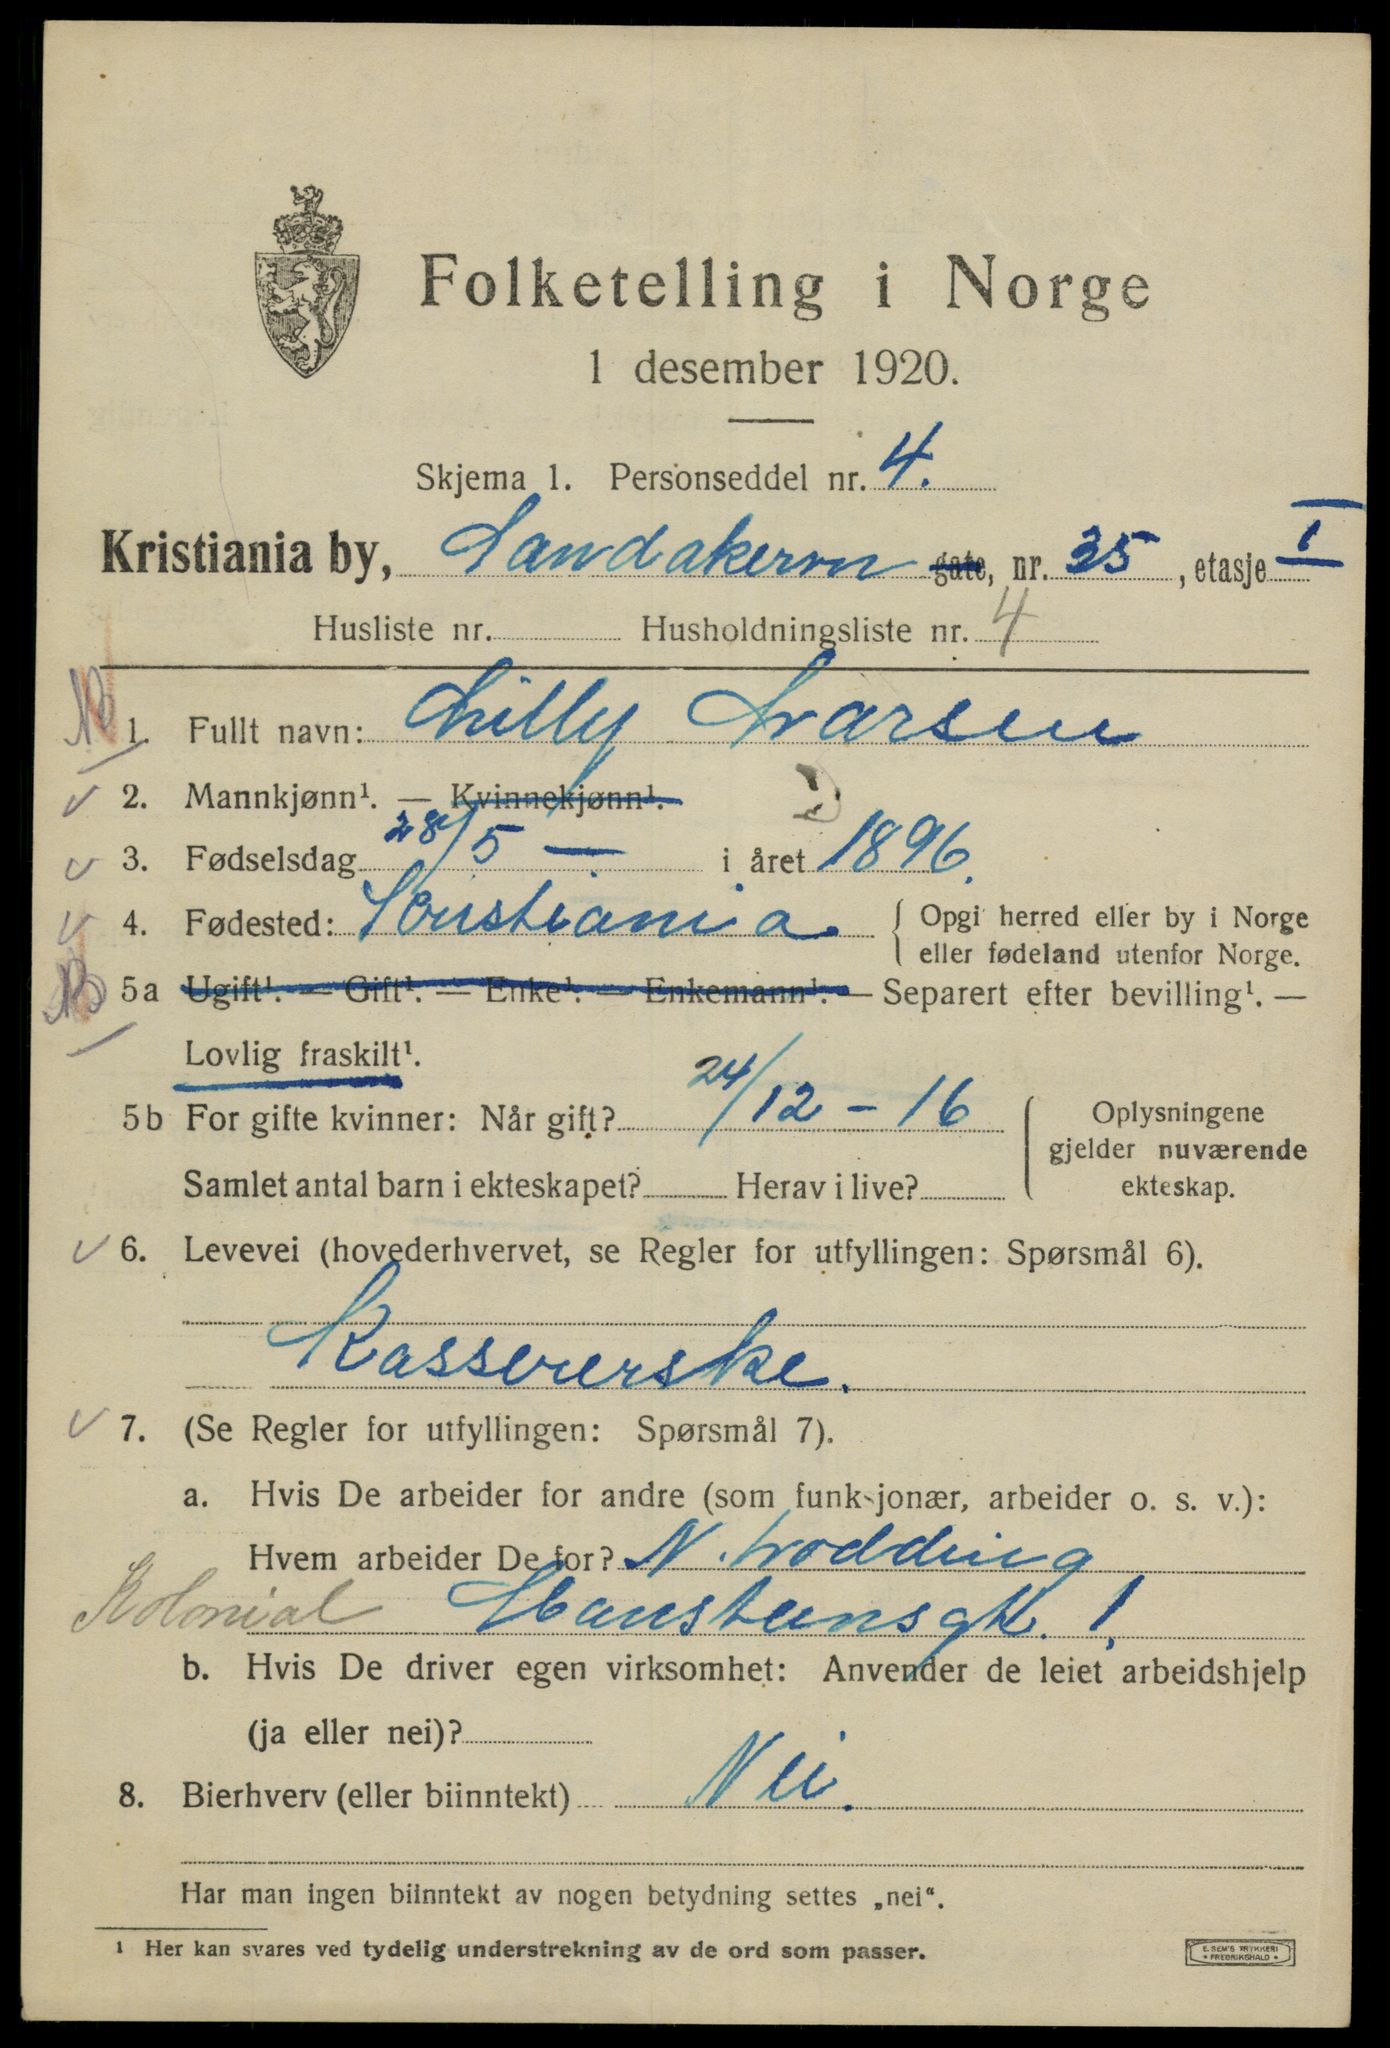 Folketelling i Norge
1 desember 1920.
Skjema 1. Personseddel nr. 4.
Kristiania by, Sandakervn gate, nr. 35, etasje I
Husliste nr. Husholdningsliste nr. 4
1. Fullt navn: Lilly Larsen
2. Mannkjønn¹. — Kvinnekjønn¹.
3. Fødselsdag 28/5 — i året 1896.
4. Fødested: Kristiania. { Opgi herred eller by i Norge
eller fødeland utenfor Norge.
5a Ugift¹. — Gift¹. — Enke¹. — Enkemann¹. — Separert efter bevilling¹. —
Lovlig fraskilt¹.
5b For gifte kvinner: Når gift? 24/12 - 16 { Oplysningene
gjelder nuværende
Samlet antal barn i ekteskapet? Herav i live? ekteskap.
6. Levevei (hovederhvervet, se Regler for utfyllingen: Spørsmål 6).
Kassererske.
7. (Se Regler for utfyllingen: Spørsmål 7).
a. Hvis De arbeider for andre (som funksjonær, arbeider o. s. v.):
Hvem arbeider De for? N.
Kolonial Hansteensgt. 1.
b. Hvis De driver egen virksomhet: Anvender de leiet arbeidshjelp
(ja eller nei)?
8. Bierhverv (eller biinntekt) Nei.
Har man ingen biinntekt av nogen betydning settes „nei“.
¹ Her kan svares ved tydelig understrekning av de ord som passer.
E. SEM'S TRYKKERI
• FREDRIKSHALD •